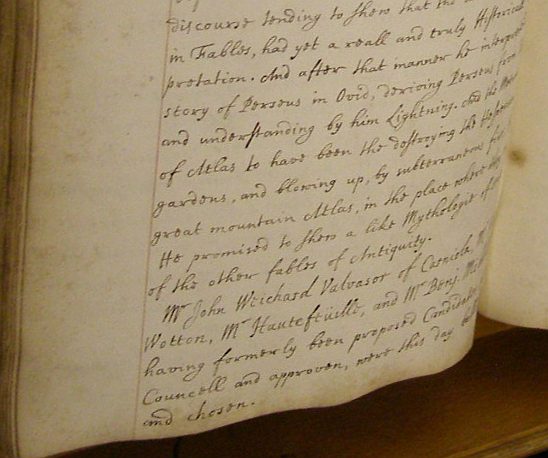 discourse tending to shew that the
in Fables, had yet a reall and truly Historicall
pretation. And after that manner he interpreted
story of Perseus in Ovid, deriving Perseus from
and understanding by him Lightning. And the
of Atlas to have been the destroying the Hesperian
gardens, and blowing up, by subterraneous
great mountain Atlas, in the place where
He promised to shew a like Mythologie of
of the other fables of Antiquity.
Mr John Weichard Valvasor of Carniola, Mr
Wotton, Mr Hautefeüille, and Mr Benj.
having formerly been proposed Candidates
Councell and approven, were this day
and chosen.